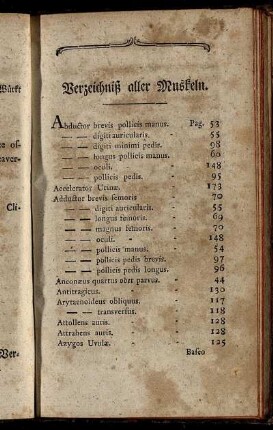 Würkt
e os-
aver-
Cli-
Ver-
Verzeichniß aller Muskeln.
Abductor brevis pollicis manus. Pag. 53
— — digiti auricularis. - 55
— — digiti minimi pedis. - 98
— — longus pollicis manus. - 60
— — oculi. - 148
— — pollicis pedis. - 95
Accelerator Urinæ. - 173
Adductor brevis femoris - 70
— — digiti auricularis. - 55
— — longus femoris. - 69
— — magnus femoris. - 70
— — oculi. - 148
— — pollicis manus. - 54
— — pollicis pedis brevis. - 97
— — pollicis pedis longus. - 96
Anconæus quartus oder parvus. - 44
Antitragicus. - 130
Arytænoideus obliquus. - 117
— — transversus. - 118
Attollens auris. - 128
Attrahens auris. - 128
Azygos Uvulæ. - 125
Basco